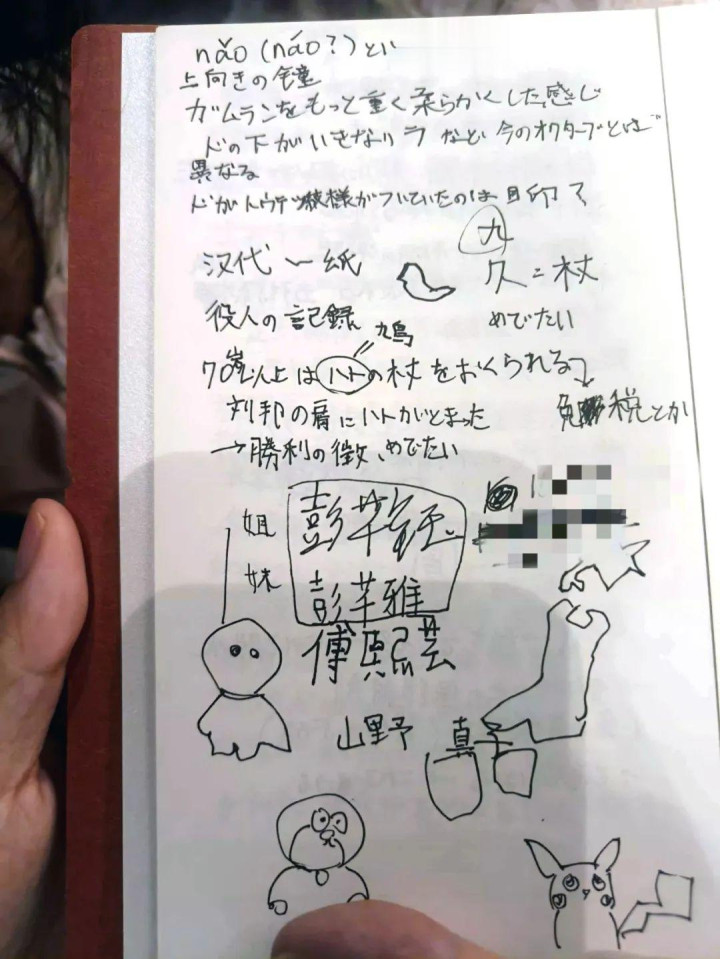 nǎo (náo?) とい
上向きの鐘
ガムランをもっと重く柔らかくした感じ
ドの下がいきなりラ など 今のオクターブとは
異なる
ドがトウテツ模様がついていたのは目印?
九
汉代 〜 紙
久=杖
役人の記録
めでたい
鳩
70歳以上はハトの杖をおくられる
免税とか
刘邦の肩にハトがとまった
→勝利の徴、めでたい
姐 彭芊鈺
妹 彭芊雅
傅熙芸
山野 真